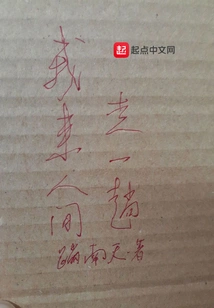 起点中文网
我来人间
走一趟
南天著